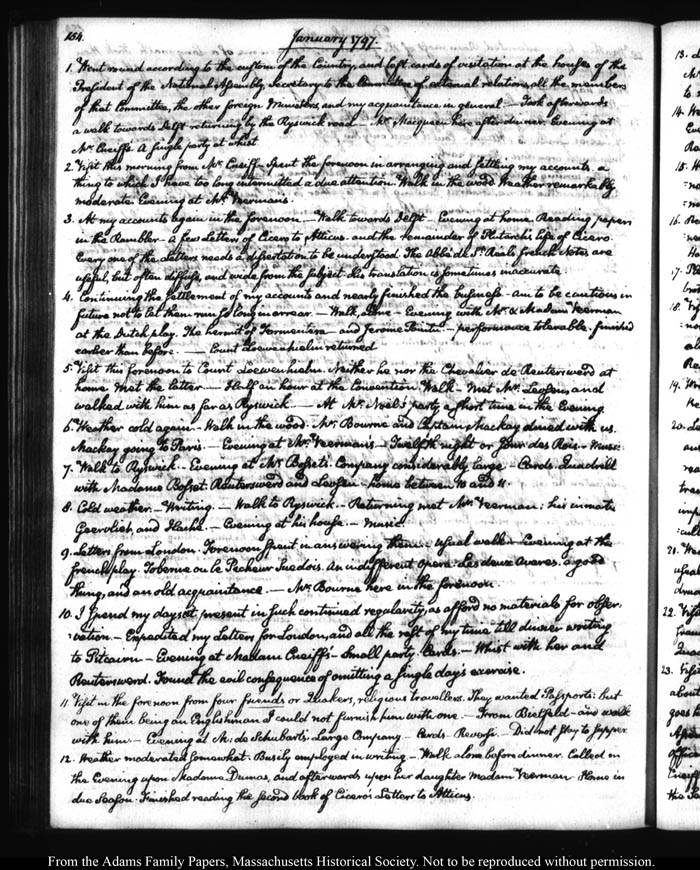 154.
January 1797.
1. Went round according to the custom of the Country, and left cards of visitation at the houses of the
President of the National Assembly, Secretary to the Committee of external relations, all the members
of that Committee, the other foreign Ministers, and my acquaintance in general — Took afterwards
a walk towards Delft returning by the Ryswick road — Mr. Macqueen here after dinner. Evening at
Mr. Cneiff's. A single party at whist.
2. Visit this morning from Mr. Cneiff. Spent the forenoon in arranging and settling my accounts, a
thing to which I have too long intermitted a due attention. Walk in the wood. Weather remarkably
moderate. Evening at Mr. Veerman's.
3. At my accounts again in the forenoon. — Walk towards Delft — Evening at home. Reading papers
in the Rambler. A few Letters of Cicero to Atticus. and the remainder of Plutarch's life of Cicero.
Every one of the Letters needs a dissertation to be understood. The Abbé de St. Réal's french Notes are
useful, but often diffuse, and wide from the subject. His translation is sometimes inaccurate.
4. Continuing the settlement of my accounts and nearly finished the business — am to be cautious in
future not to let them run so long in arrear. — Walk, alone — Evening with Mr. & Madam Veerman
at the Dutch play. The hermit of Formentera — and Jerome Pointu — performance tolerable. finished
earlier than before. — Count Loewenhielm returned
5. Visit this forenoon to Count Loewenhielm. Neither he nor the Chevalier de Reutersward at
home. Met the latter — Half an hour at the Convention. Walk. Met Mr. Levsen, and
walked with him as far as Ryswick. — At Mr. Noel's party a short time in the Evening.
6. Weather cold again — Walk in the wood. Mr. Bourne and Captain Mackay dined with us.
Mackay going to Paris. — Evening at Mr. Veerman's — Twelfth night or Jour des Rois — Music
7. Walk to Ryswick. Evening at Mr. Bosset's. Company considerably large — Cards. Quadrill
with Madame Bosset. Reutersward and Levsen — home between 10 and 11.
8. Cold weather — Writing. — Walk to Ryswick. — Returning met Mr. Veerman; his inmate
Geervliet, and — Evening at his house. — Music
9. Letters from London. Forenoon spent in answering them. Usual walk — Evening at the
french play. Toberne ou le Pecheur Suedois. An indifferent Opera. Les deux Avares. a good
thing, and an old acquaintance. — Mr. Bourne here in the forenoon.
10. I spend my days at present in such continued regularity, as afford no materials for obser-
:vation — Expedited my Letters for London, and all the rest of my time till dinner writing
to Pitcairn — Evening at Madam Cneiff's — Small party. Cards. — Whist with her and
Reutersward. Found the evil consequence of omitting a single day's exercise.
11. Visit in the forenoon from four friends or Quakers, religious travellers. They wanted Passports: but
one of them being an Englishman I could not furnish him with one. — From Bielfeld — and walk
with him — Evening at M: de Schubart's. Large Company — Cards. Reversi. — Did not stay to supper.
12. Weather moderated somewhat. Busily employed in writing — Walk alone before dinner. Called in
the Evening upon Madame Dumas, and afterwards upon her daughter Madam Veerman. Home in
due Season. Finished reading the second book of Cicero's Letters to Atticus.
13.
14.
15.
16.
17.
18.
19.
20.
21.
22.
23.
From the Adams Family Papers, Massachusetts Historical Society. Not to be reproduced without permission.